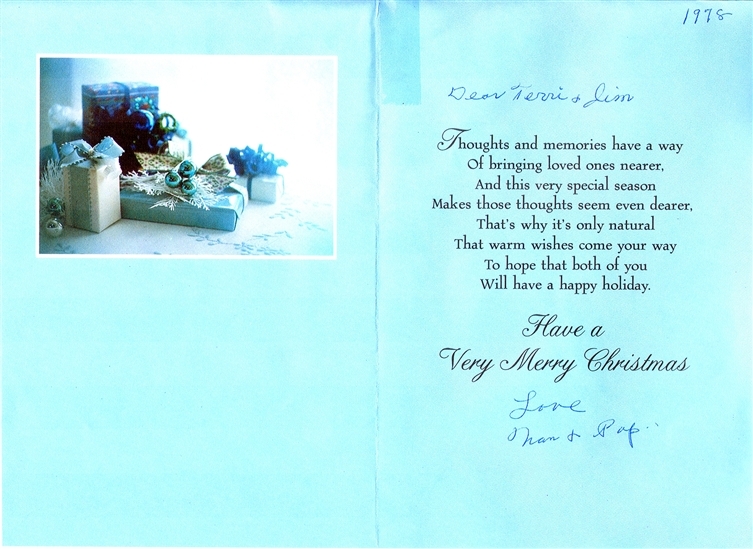 1978
Dear Terri & Jim
Thoughts and memories have a way
Of bringing loved ones nearer,
And this very special season
Makes those thoughts seem even dearer,
That's why it's only natural
That warm wishes come your way
To hope that both of you
Will have a happy holiday.
Have a
Very Merry Christmas
Love
Nan & Pop